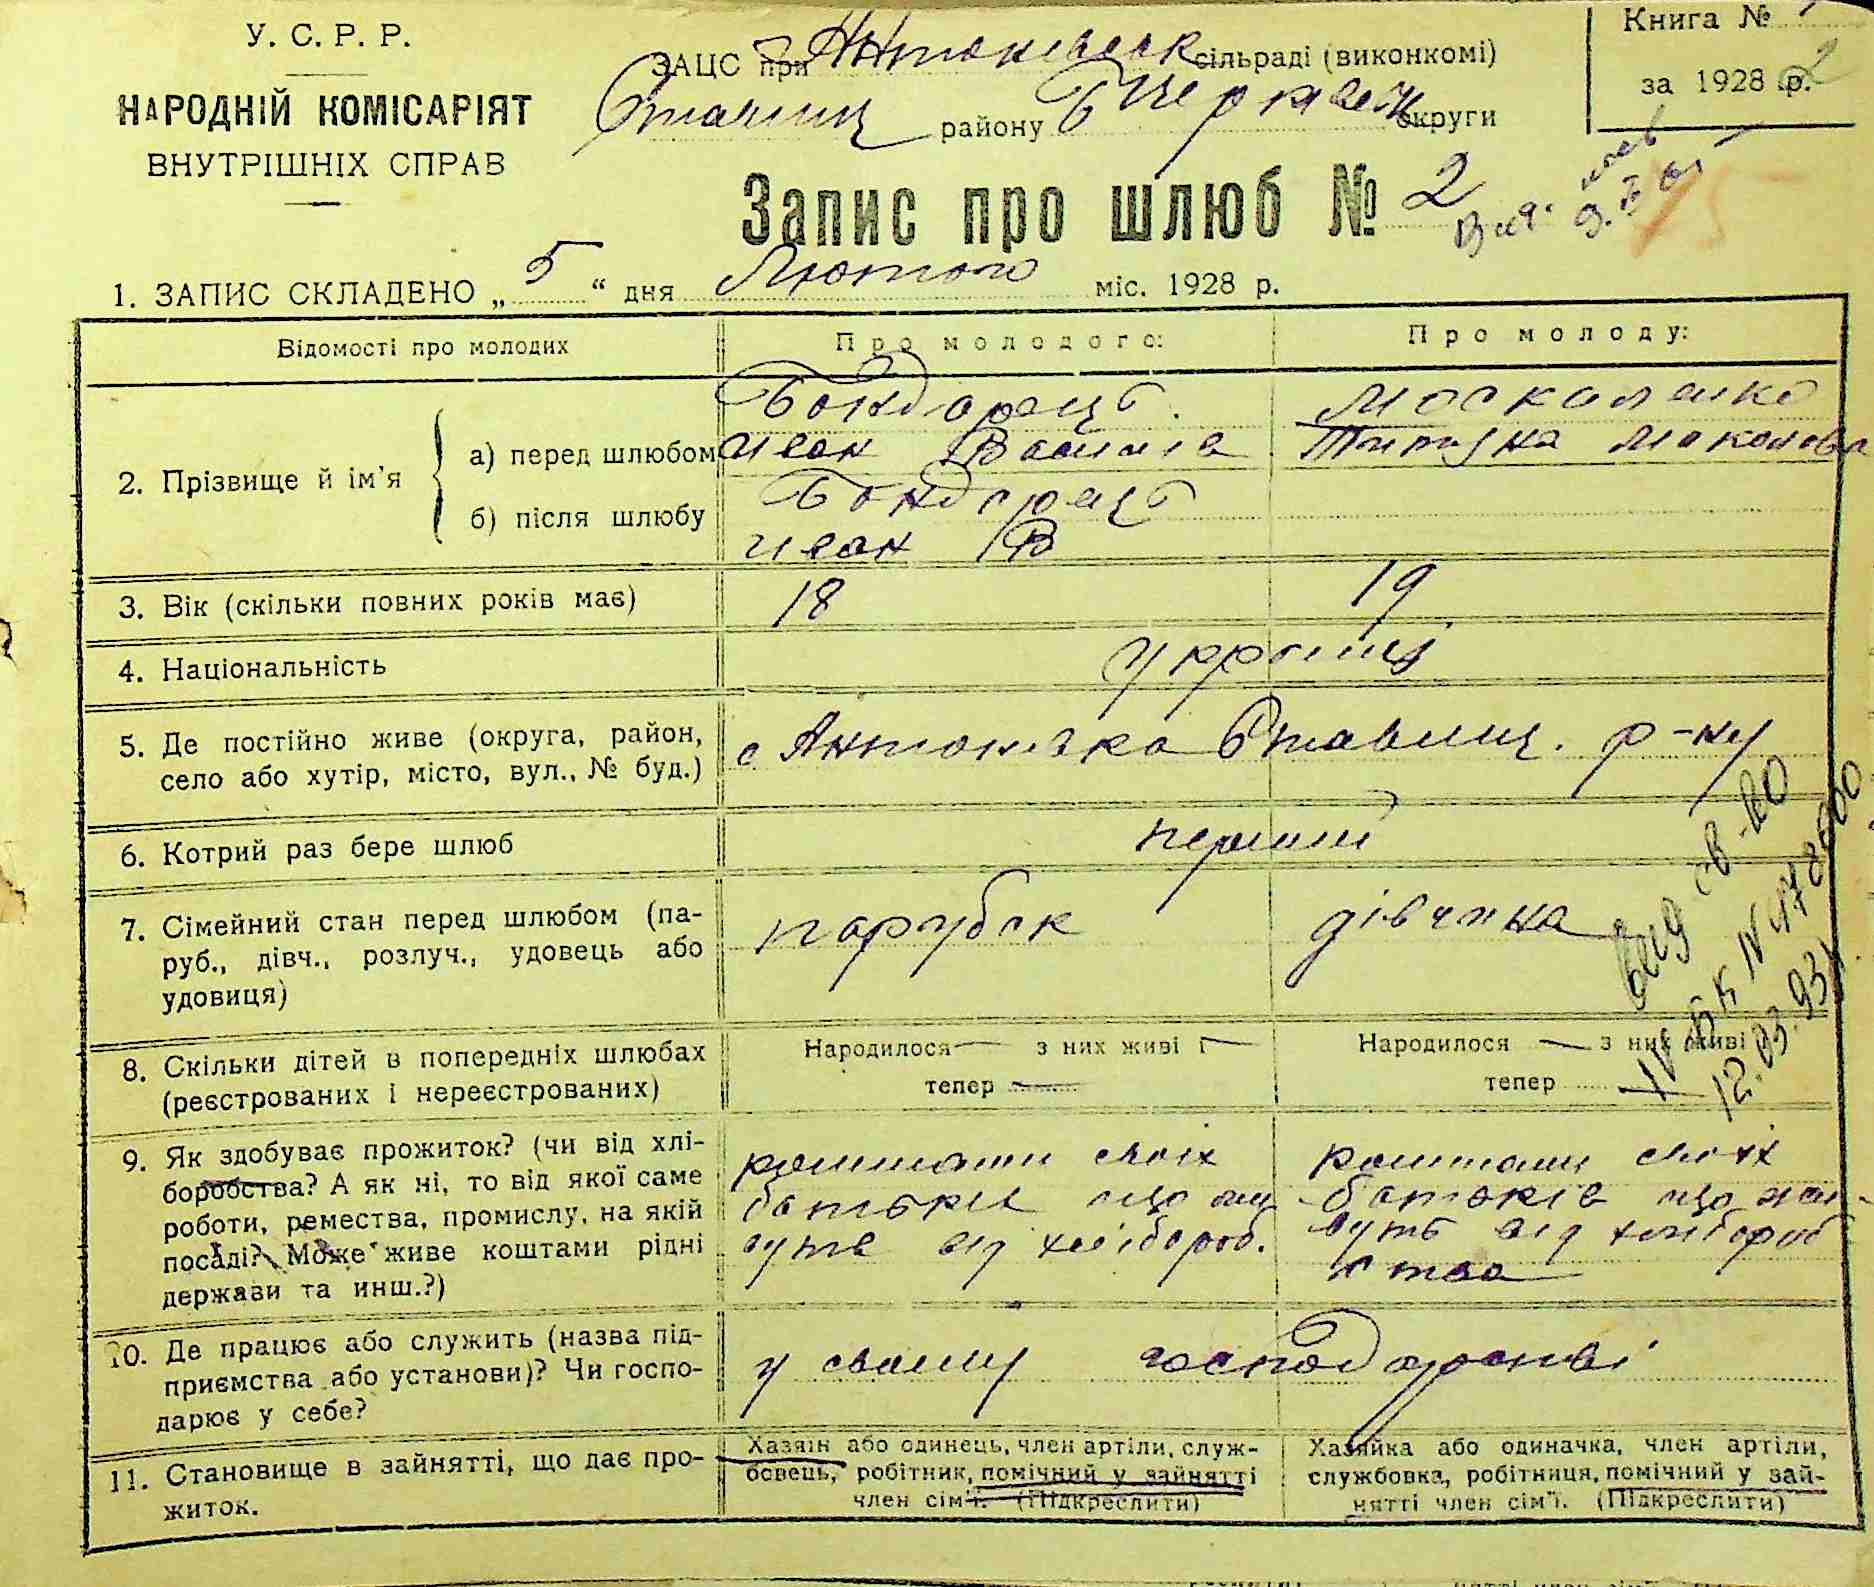 У. С. Р. Р.
НАРОДНІЙ КОМІСАРІЯТ
ВНУТРІШНІХ СПРАВ
ЗАЦС при Антонівськ сільраді (виконкомі)
Ставищ району Б Церквен округи
Книга №
за 1928 р.
Запис про шлюб № 2
1. ЗАПИС СКЛАДЕНО „ 5 “ дня Лютого міс. 1928 р.
Відомості про молодих
Про молодого:
Про молоду:
2. Прізвище й ім'я
а) перед шлюбом
Бондарець
Иван Василів
Москаленко
б) після шлюбу
Бондарець
Иван В
3. Вік (скільки повних років має)
18
19
4. Національність
україці
5. Де постійно живе (округа, район,
село або хутір, місто, вул., № буд.)
с Антонівка Ставищ. р-ну
6. Котрий раз бере шлюб
перший
7. Сімейний стан перед шлюбом (па-
руб., дівч., розлуч., удовець або
удовиця)
парубок
дівчина
8. Скільки дітей в попередніх шлюбах
(реєстрованих і нереєстрованих)
Народилося — з них живі
тепер
Народилося — з них живі
тепер
9. Як здобуває прожиток? (чи від хлі-
боробства? А як ні, то від якої саме
роботи, ремества, промислу, на якій
посаді? Може живе коштами рідні
держави та инш.?)
коштами своїх
батьків що жи
вуть від хлібороб.
коштами своїх
батьків що жи-
вуть від хлібороб
ства
10. Де працює або служить (назва під-
приємства або установи)? Чи госпо-
дарює у себе?
у своему господарстві
11. Становище в зайнятті, що дає про-
житок.
Хазяїн або одинець, член артіли, служ-
бовець, робітник, помічний у зайнятті
член сім'ї. (Підкреслити)
Хазяйка або одиначка, член артіли,
службовка, робітниця, помічний у зай-
нятті член сім'ї. (Підкреслити)
12.03.93